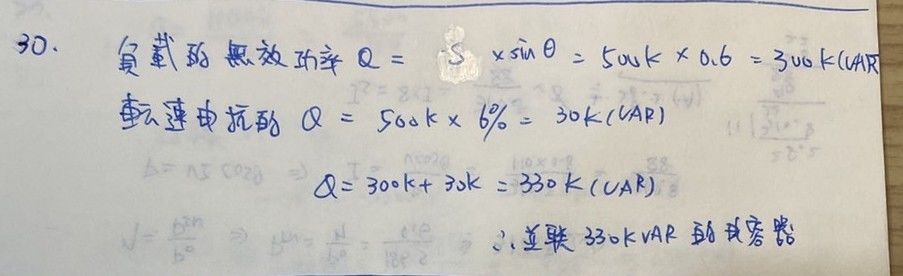 30.
負載的無效功率 Q = S × sin θ = 500k × 0.6 = 300 k (VAR)
連 抗的 Q = 500k × 6% = 30k (VAR)
Q = 300k + 30k = 330 k (VAR)
∴ 並联 330k VAR 的 容器